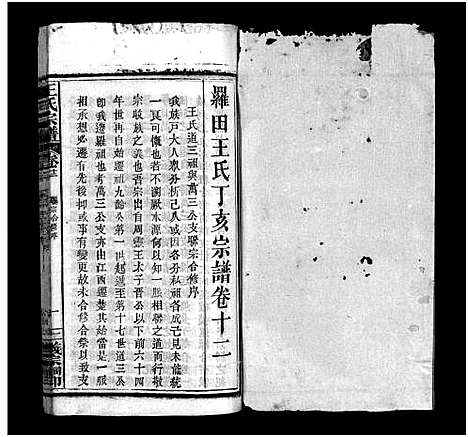 羅田王氏丁亥宗譜卷十二
王氏道三祖與萬三公支聯宗合修序
我族戶大人眾分析已久或因各分私祖各成已見未能統
一良可傷也若不溯厥水源何以知一脈相聯之道而行敬
宗收族之美也吾宗出自周靈王太子晉公以下前六十四
年世再自始遷祖九齡公第一世起遞至第十七世道三公
即我遷羅祖也考萬三公支亦由江西遷楚其始當是一派
相承想必遷有先後抑或事有變更故未合修合祭以致支
王氏宗譜